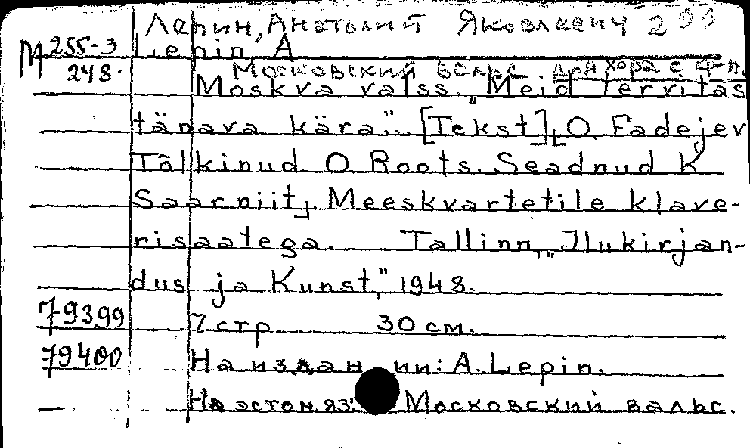 Лепин, Анатолий Яковлевич 200
M 255-3 Lepin, A
248.
Московский вальс для хора с ф-п.
Moskva valss. „Meid tervitas
tänava kära.". [Tekst], O. Fadejev
Tõlkinud O. Roots. Seadnud K.
Saarniit, Meeskvartetile klave-
risaatega. Tallinn, „Ilukirjan-
dus ja Kunst," 1948.
79399 7 стр. 30 см.
79400 На издан ии: A. Lepin.
На эстон. яз. Московский вальс.